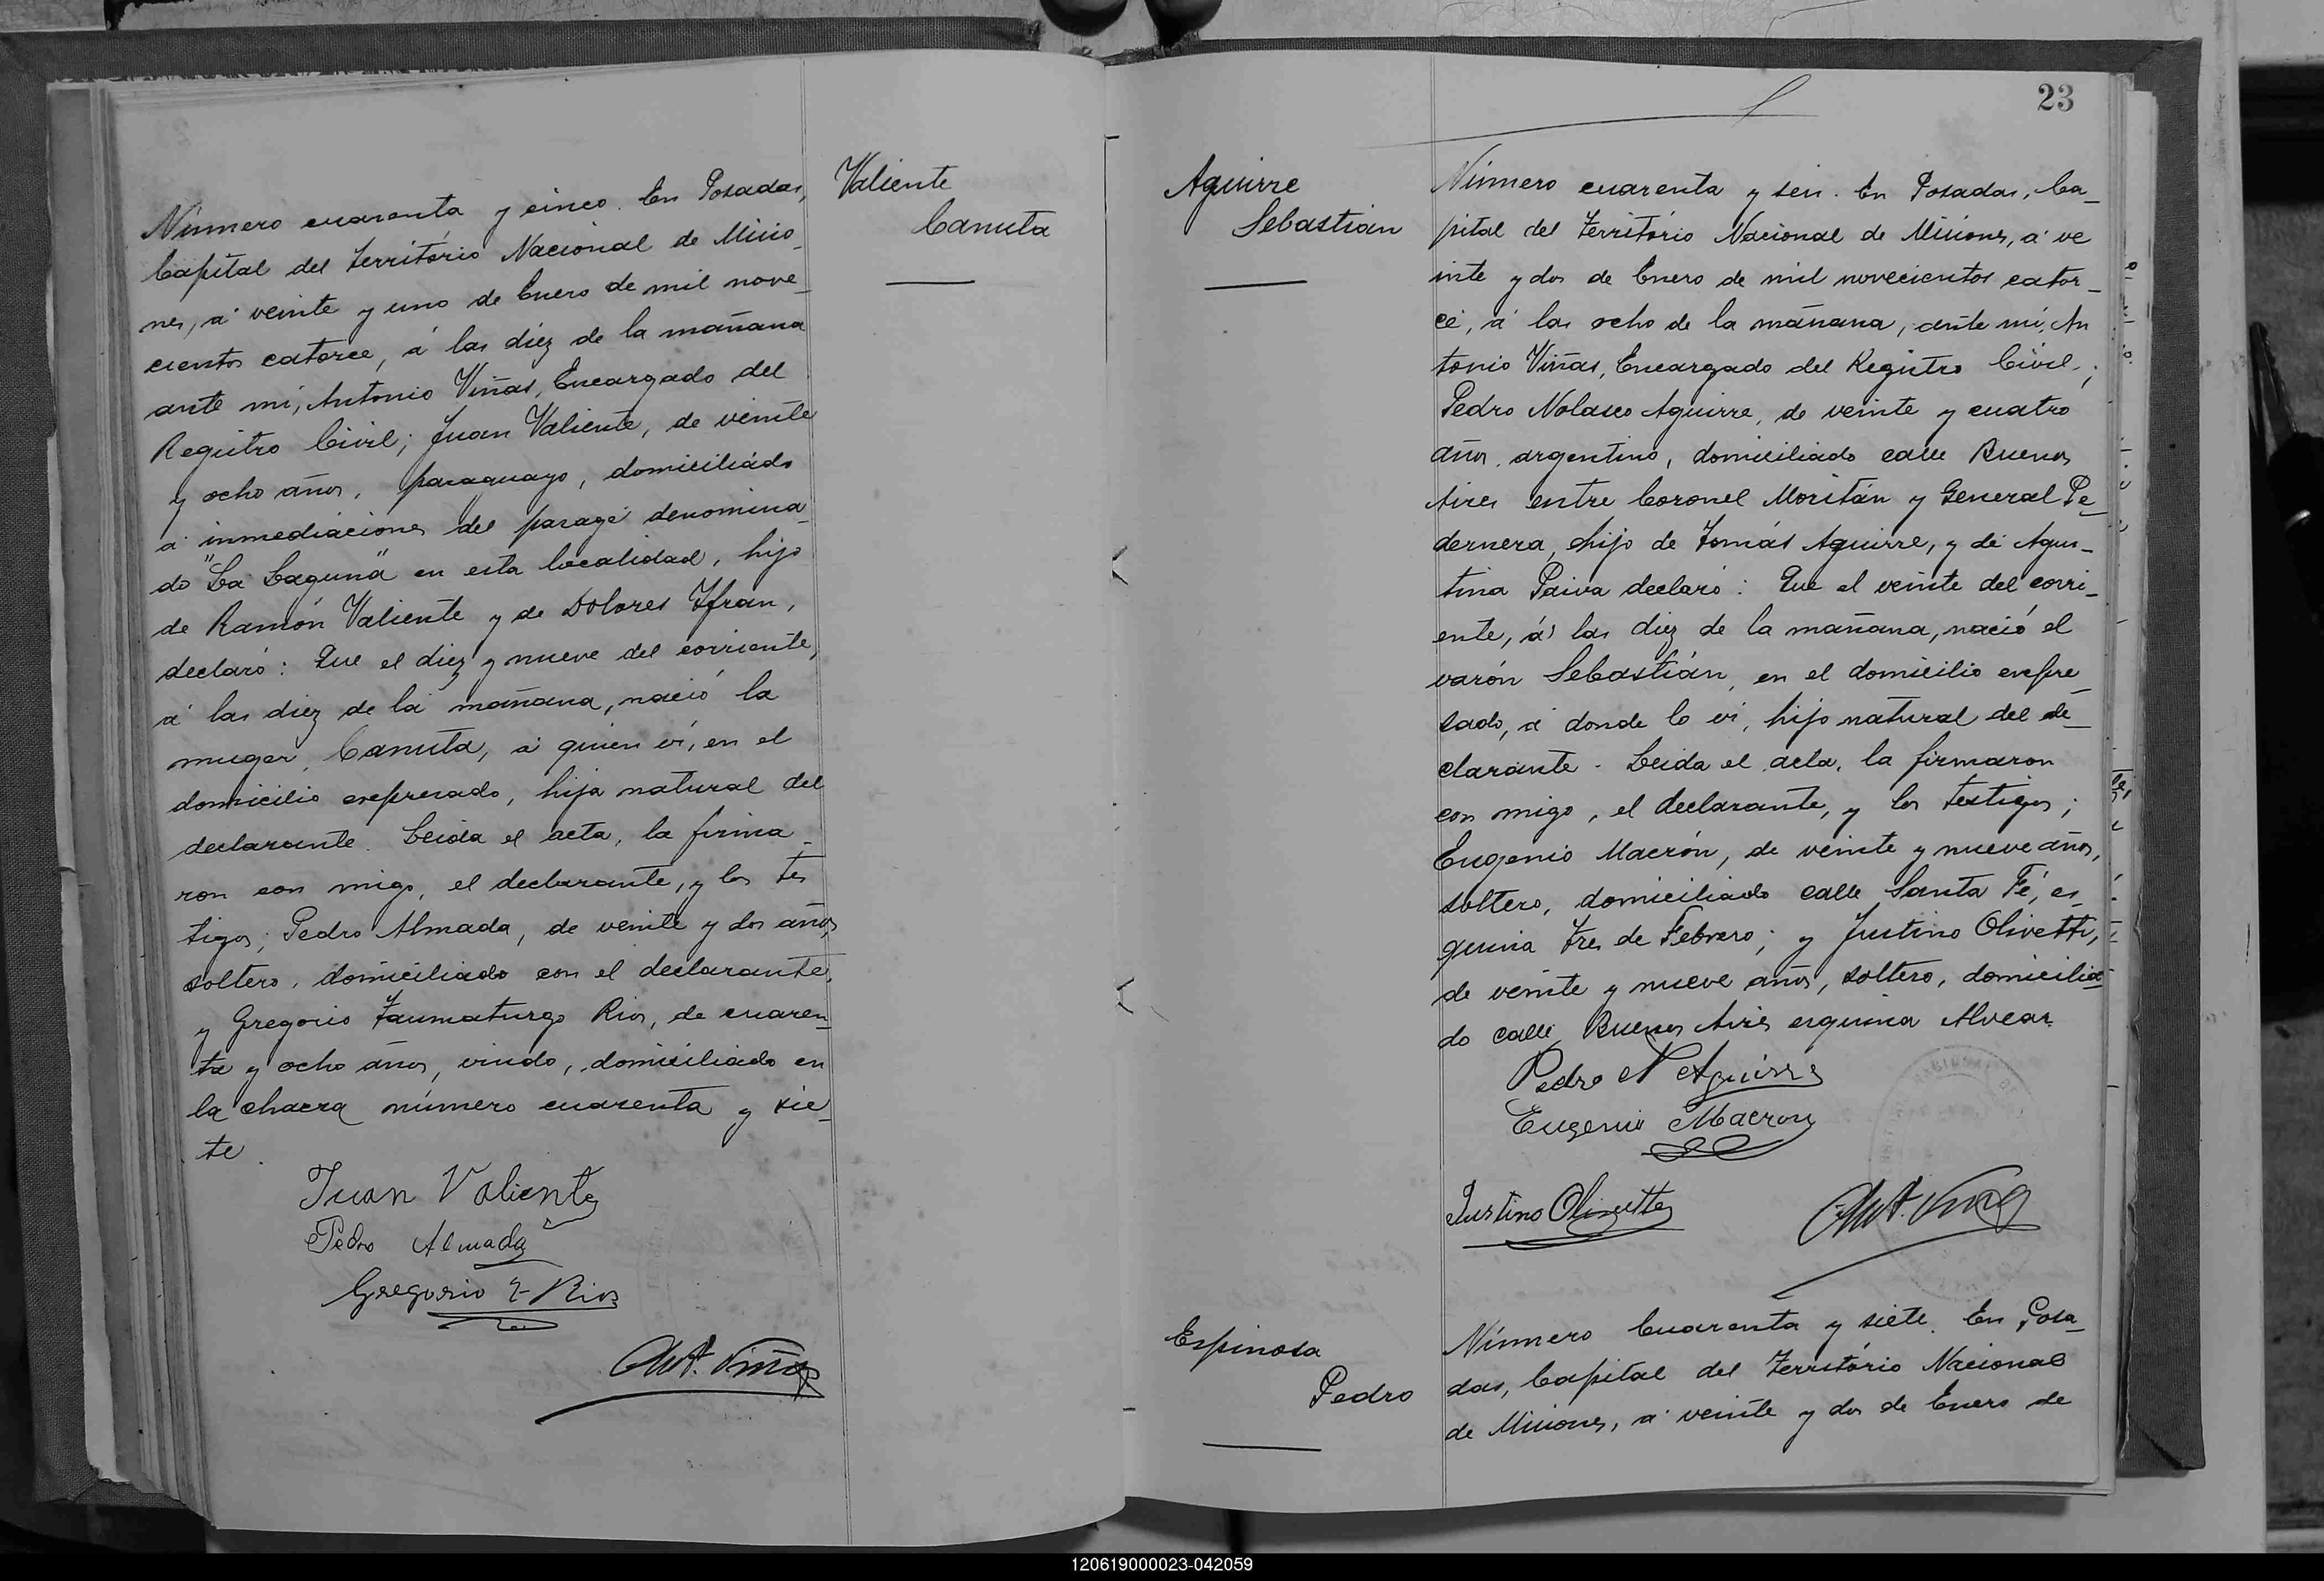 Valiente
Canuta
Número cuarenta y cinco. En Posadas,
Capital del Território Nacional de Misio_
nes, á veinte y uno de Enero de mil nove_
cientos catorce, á las diez de la mañana
ante mí, Antonio Viñas, Encargado del
Registro Civil; Juan Valiente, de veinte
y ocho años, paraguayo, domiciliado
á inmediaciones del parage denomina_
do "La Laguna" en esta localidad, hijo
de Ramón Valiente y de Dolores Ifran,
declaró: Que el diez y nueve del corriente,
á las diez de la mañana, nació la
muger, Canuta, á quien ví, en el
domicilio expresado, hija natural del
declarante. Leida el acta, la firma_
ron con migo, el declarante, y los tes
tigos; Pedro Almada, de veinte y dos años,
soltero, domiciliado con el declarante,
y Gregorio Taumaturgo Rios, de cuaren_
ta y ocho años, viudo, domiciliado en
la chacra número cuarenta y sie_
te.
Juan Valiente
Pedro Almada
Gregorio T. Rios
Ant. Viñas
23
Aguirre
Sebastián
Número cuarenta y seis. En Posadas, Ca_
pital del Território Nacional de Misiones, á ve
inte y dos de Enero de mil novecientos cator_
ce, á las ocho de la mañana, ante mí, An
tonio Viñas, Encargado del Registro Civil,;
Pedro Nolasco Aguirre, de veinte y cuatro
años, argentino, domiciliado calle Buenos
Aires entre Coronel Moritán y General Pe_
dernera, hijo de Tomás Aguirre, y de Agus_
tina Paiva declaró: Que el veinte del corri_
ente, á las diez de la mañana, nació el
varón Sebastián, en el domicilio expre_
sado, á donde lo ví, hijo natural del de_
clarante. Leida el acta, la firmaron
con migo, el declarante, y los testigos;
Eugenio Macrón, de veinte y nueve años,
soltero, domiciliado calle Santa Fé, es_
quina Tres de Febrero; y Justino Olivetti,
de veinte y nueve años, soltero, domicilia_
do calle Buenos Aires esquina Alvear.
Pedro N Aguirre
Eugenio Macron
Justino Olivetti
Ant. Viñas
Espinosa
Pedro
Número Cuarenta y siete. En Posa_
das, Capital del Território Nacional
de Misiones, á veinte y dos de Enero de
120619000023-042059